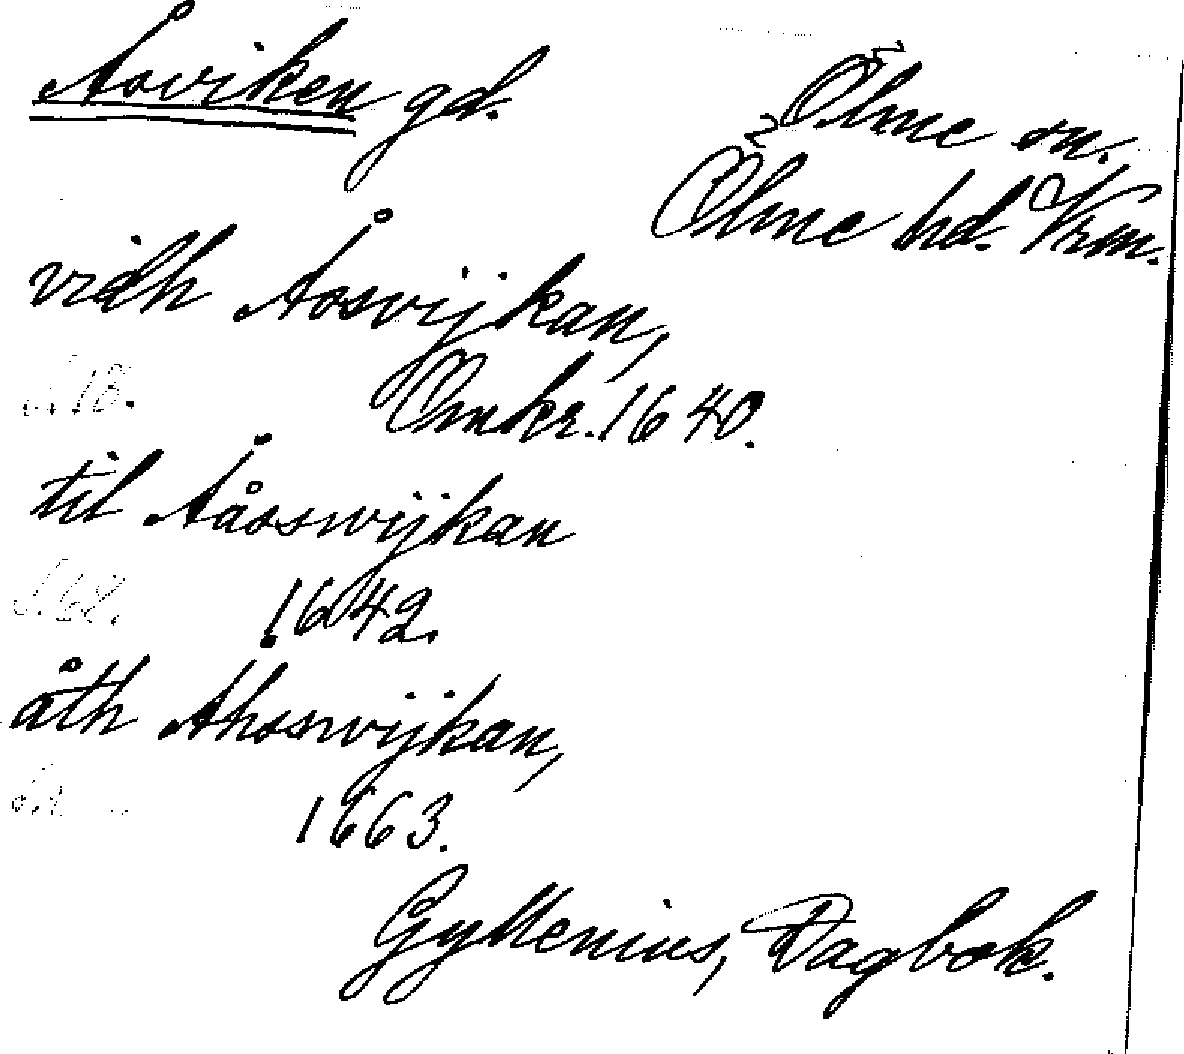 Åsviken gd.
Ölme sn.
Ölme hd. Vrm.
vidh Åosvijkan,
s. 18.
Omkr. 1640.
til Ååsswijkan
s. 62.
1642.
åth Ahsswijkan,
1663.
Gyllenius, Dagbok.